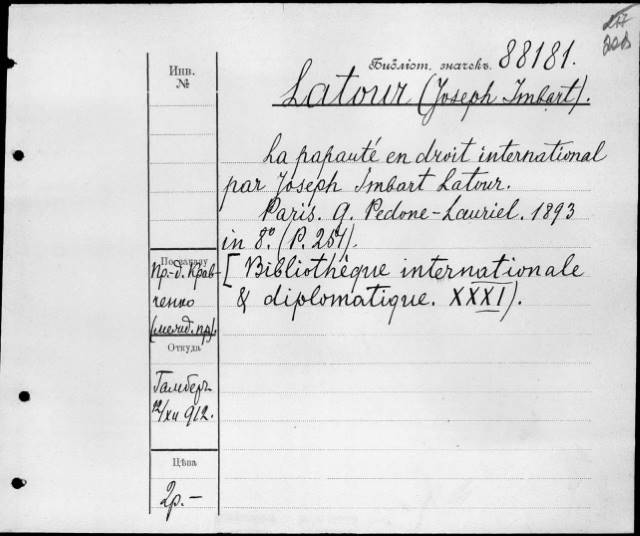 Библіот. значекъ. 88181.
Инв.
№
Latour (Joseph Imbart).
La papauté en droit international
par Joseph Imbart Latour.
Paris. G. Pedone-Lauriel. 1893
in 8º. (P. 251).
[Bibliothèque internationale
& diplomatique. XXXI).
По заказу
Пр.-д. Крав-
ченко
Откуда
Гамберъ
12/XII 912.
Цѣна
2р.-